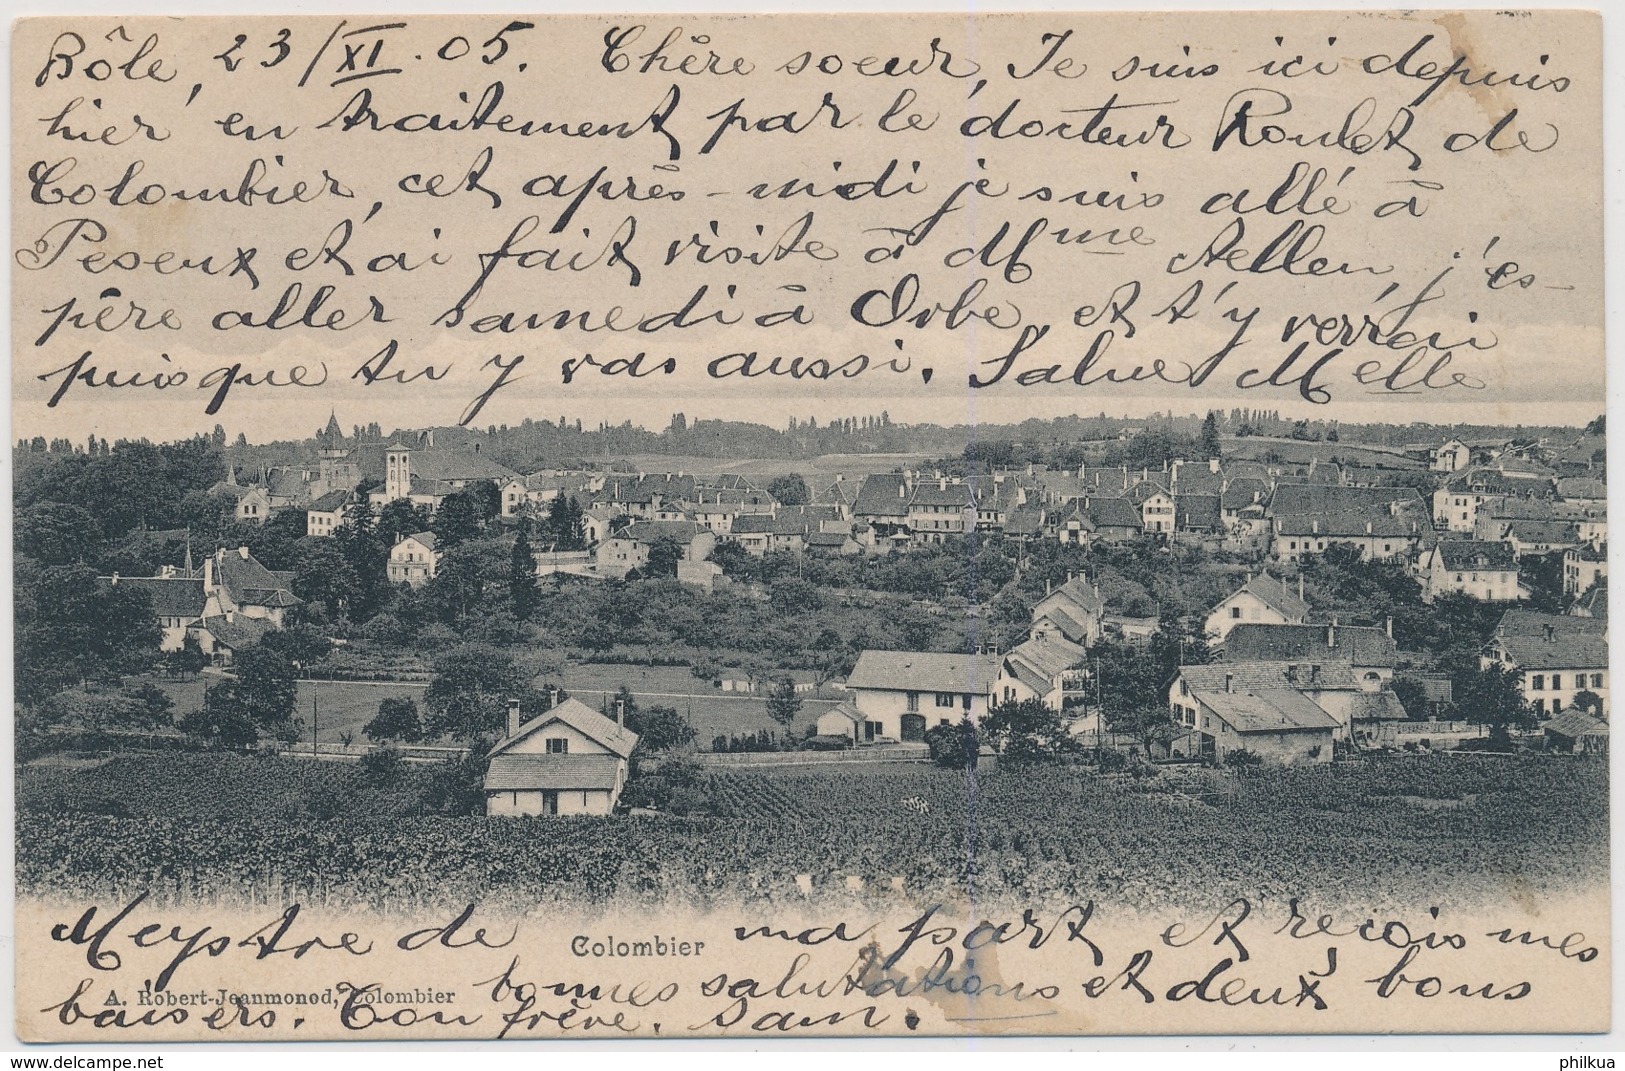 Bôle, 23/XI.05. Chère soeur, Je suis ici depuis
hier en traitement par le docteur Roulet de
Colombier, cet après-midi je suis allé à
Peseux et ai fait visite à Mme , j'es-
père aller samedi à Orbe et t'y verrai
puisque tu y vas aussi. Salue Melle
Meystre de ma part et reçois mes
Colombier
bonnes salutations et deux bons
A. Robert-Jeanmonod, Colombier
baisers. Ton frère. Sam.
delcampe.net
philkua